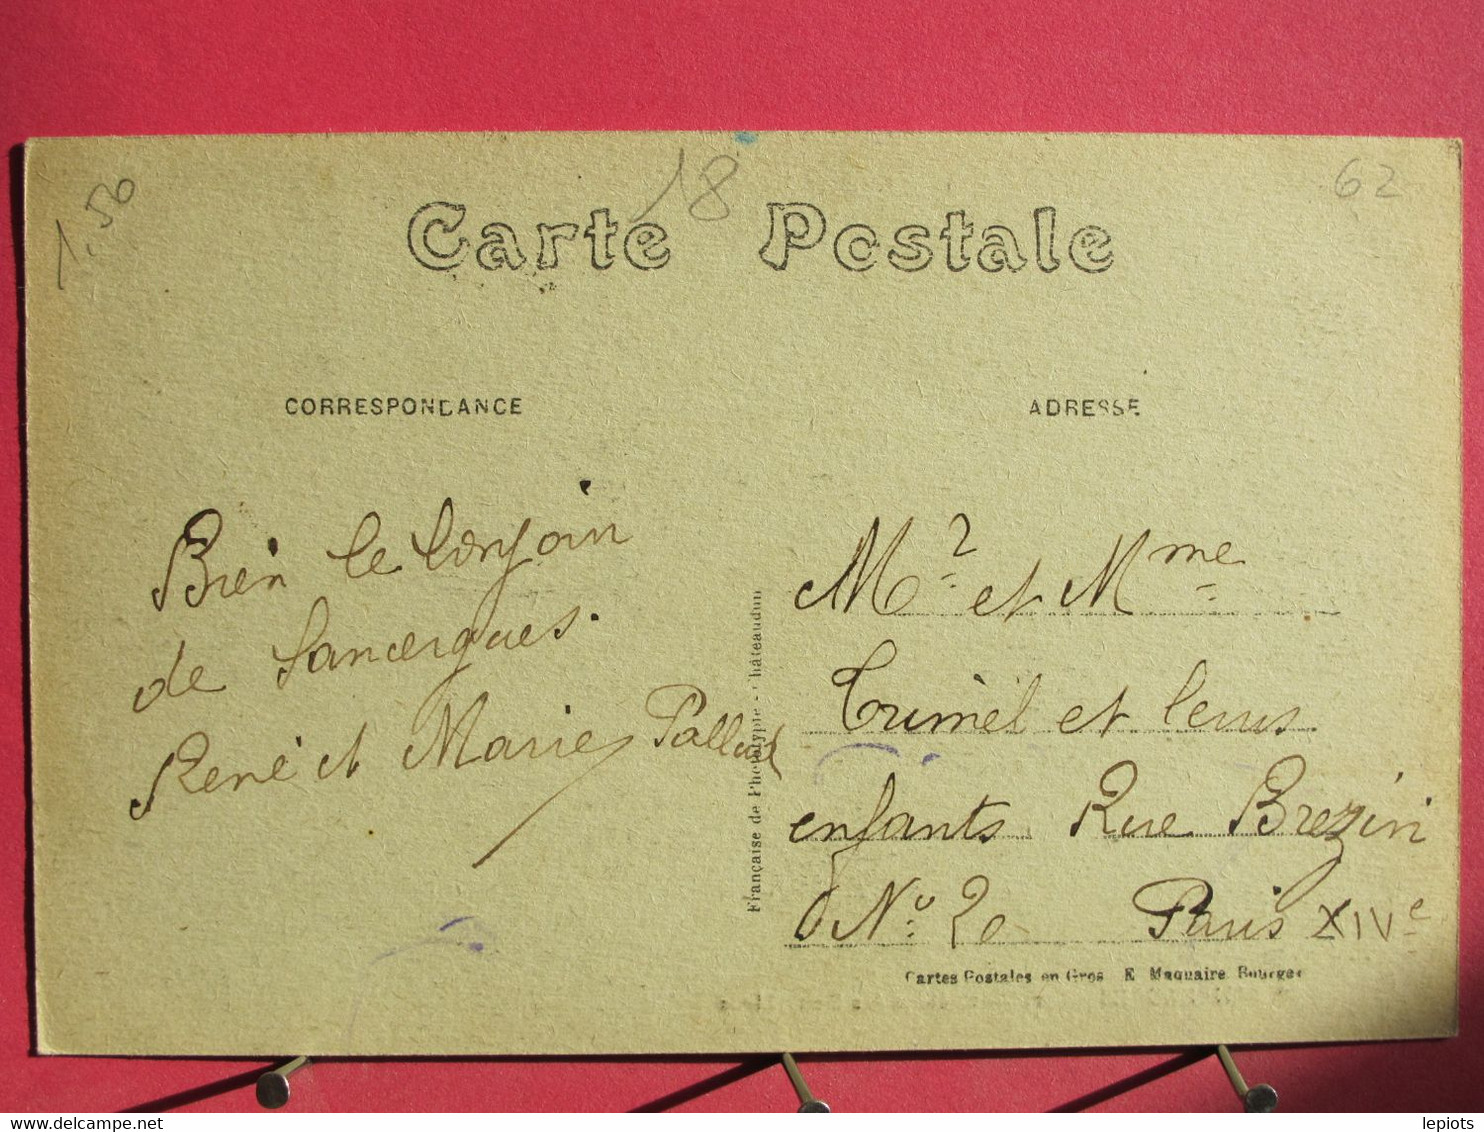 1,50
18
62
Carte Postale
CORRESPONDANCE
ADRESSE
Bien le bonjour
de Sancergues.
René et Marie Pallud
Française de Phototypie - Châteaudun
Mr et Mme
Trimél et leurs
enfants Rue Brezin
No 20 Paris XIVe
Cartes Postales en Gros E Maquaire Bourges
lepiots